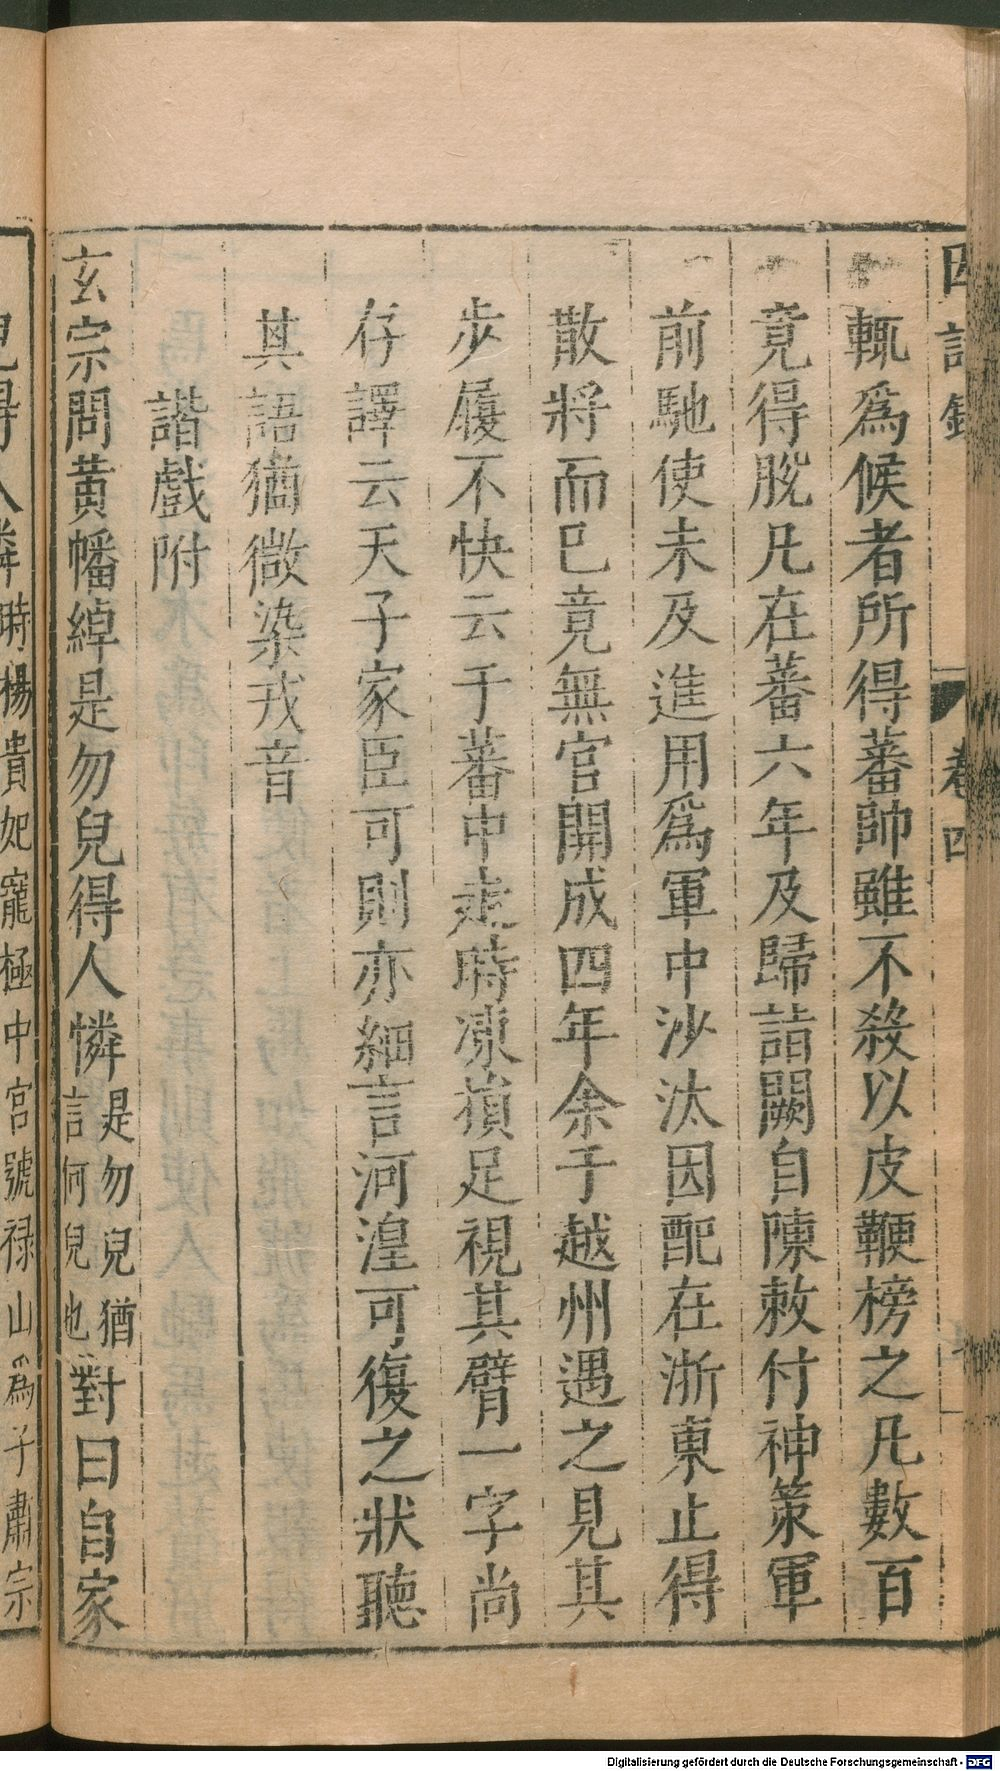 因話錄 卷四
輒爲候者所得蕃帥雖不殺以皮鞭榜之凡數百
竟得脫凡在蕃六年及歸詣闕自陳敕付神策軍
前馳使未及進用爲軍中沙汰因配在浙東止得
散將而巳竟無官開成四年余于越州遇之見其
步履不快云于蕃中走時凍損足視其臂一字尚
存譯云天子家臣可則亦細言河湟可復之狀聽
其語猶微染戎音
諧戲附
玄宗問黃幡綽是勿兒得人憐是勿兒猶言何兒也對曰自家
兒得人憐時楊貴妃寵極中宮號祿山爲子肅宗
Digitalisierung gefördert durch die Deutsche Forschungsgemeinschaft - DFG